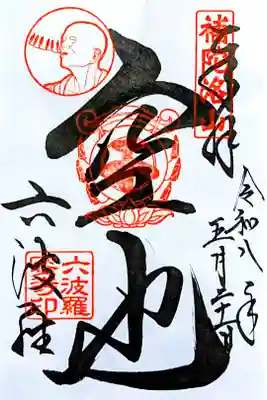 奉拝
補陀洛山
令和八年
五月三十一日
空也
六波羅
六波羅
蜜寺印